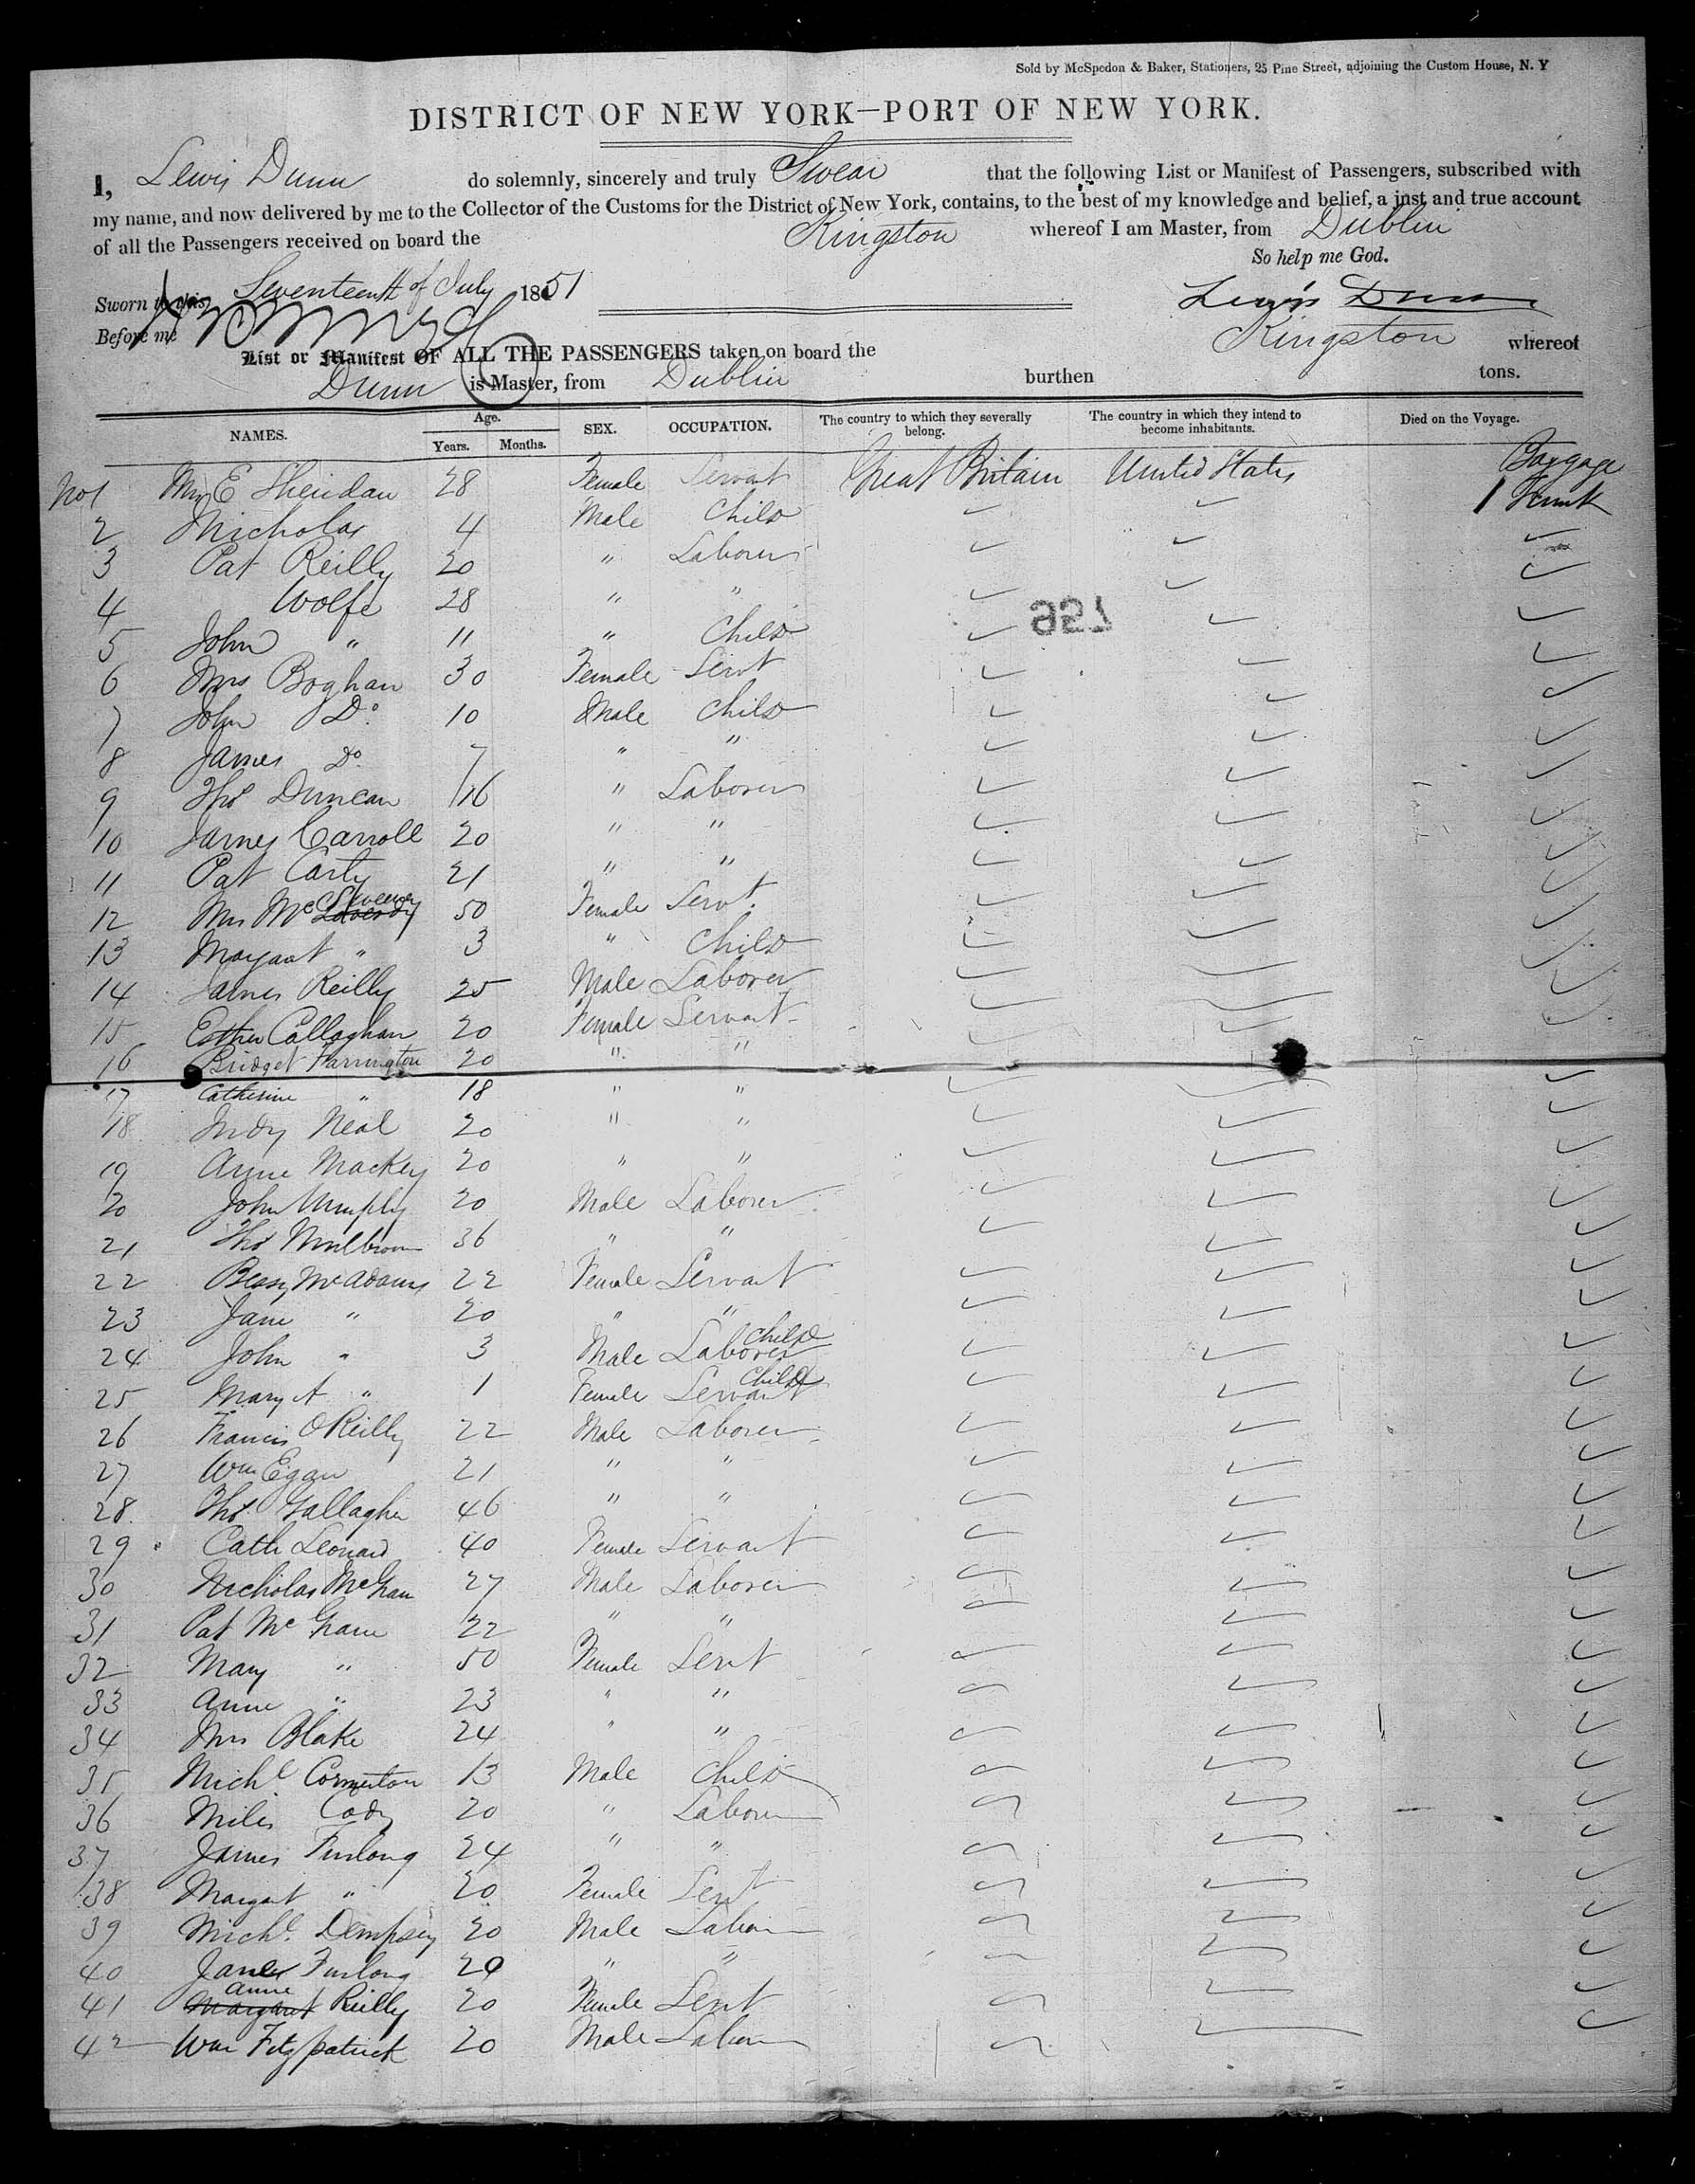 Sold by McSpedon & Baker, Stationers, 25 Pine Street, adjoining the Custom House, N. Y
DISTRICT OF NEW YORK—PORT OF NEW YORK.
I, Lewis Dunn do solemnly, sincerely and truly Swear that the following List or Manifest of Passengers, subscribed with
my name, and now delivered by me to the Collector of the Customs for the District of New York, contains, to the best of my knowledge and belief, a just and true account
of all the Passengers received on board the Kingston whereof I am Master, from Dublin
So help me God.
Sworn to this Seventeenth of July 1851
Lewis Dunn
Before me
List or Manifest OF ALL THE PASSENGERS taken on board the Kingston whereof
Dunn is Master, from Dublin burthen tons.
NAMES. Age. Years. Months. SEX. OCCUPATION. The country to which they severally belong. The country in which they intend to become inhabitants. Died on the Voyage.
Baggage
No 1 Mrs E Sheridan 28 Female Servant Great Britain United States 1 Trunk
2 Nicholas 4 Male Child
3 Pat Reilly 20 " Laborer
4 Wolfe 28 " "
957
5 John " 11 " Child
6 Mrs Boghan 30 Female Servt
7 John Do 10 Male Child
8 James Do 7 " "
9 Thos Duncan 16 " Laborer
10 James Carroll 20 " "
11 Pat Carty 21 " "
12 Mrs Mc Sweeney 50 Female Servt.
13 Margaret " 3 " Child
14 James Reilly 25 Male Laborer
15 Esther Callaghan 20 Female Servant
16 Bridget Farrington 20 " "
17 Catherine " 18 " "
18 Judy Neal 20 " "
19 Anne Mackey 20 " "
20 John Murphy 20 Male Laborer
21 Thos 36 " "
22 Bessy McAdams 22 Female Servant
23 Jane " 20 " "
24 John " 3 Male Laborer Child
25 Mary A " 1 Female Servant Child
26 Francis OReilly 22 Male Laborer
27 Wm Egan 21 " "
28 Thos Gallagher 46 " "
29 Cath Leonard 40 Female Servant
30 Nicholas McGran 27 Male Laborer
31 Pat Mc Grane 22 " "
32 Mary " 50 Female Servt
33 Anne " 23 " "
34 Mrs Blake 24 " "
35 Michl 13 Male Child
36 Miles Cody 20 " Laborer
37 James Furlong 24 " "
38 Margart " 20 Female Servt
39 Michl. Dempsey 20 Male Labor
40 Furlong 20 " "
41 Margaret Anne Reilly 20 Female Servt
42 Wm Fitzpatrick 20 Male Labor